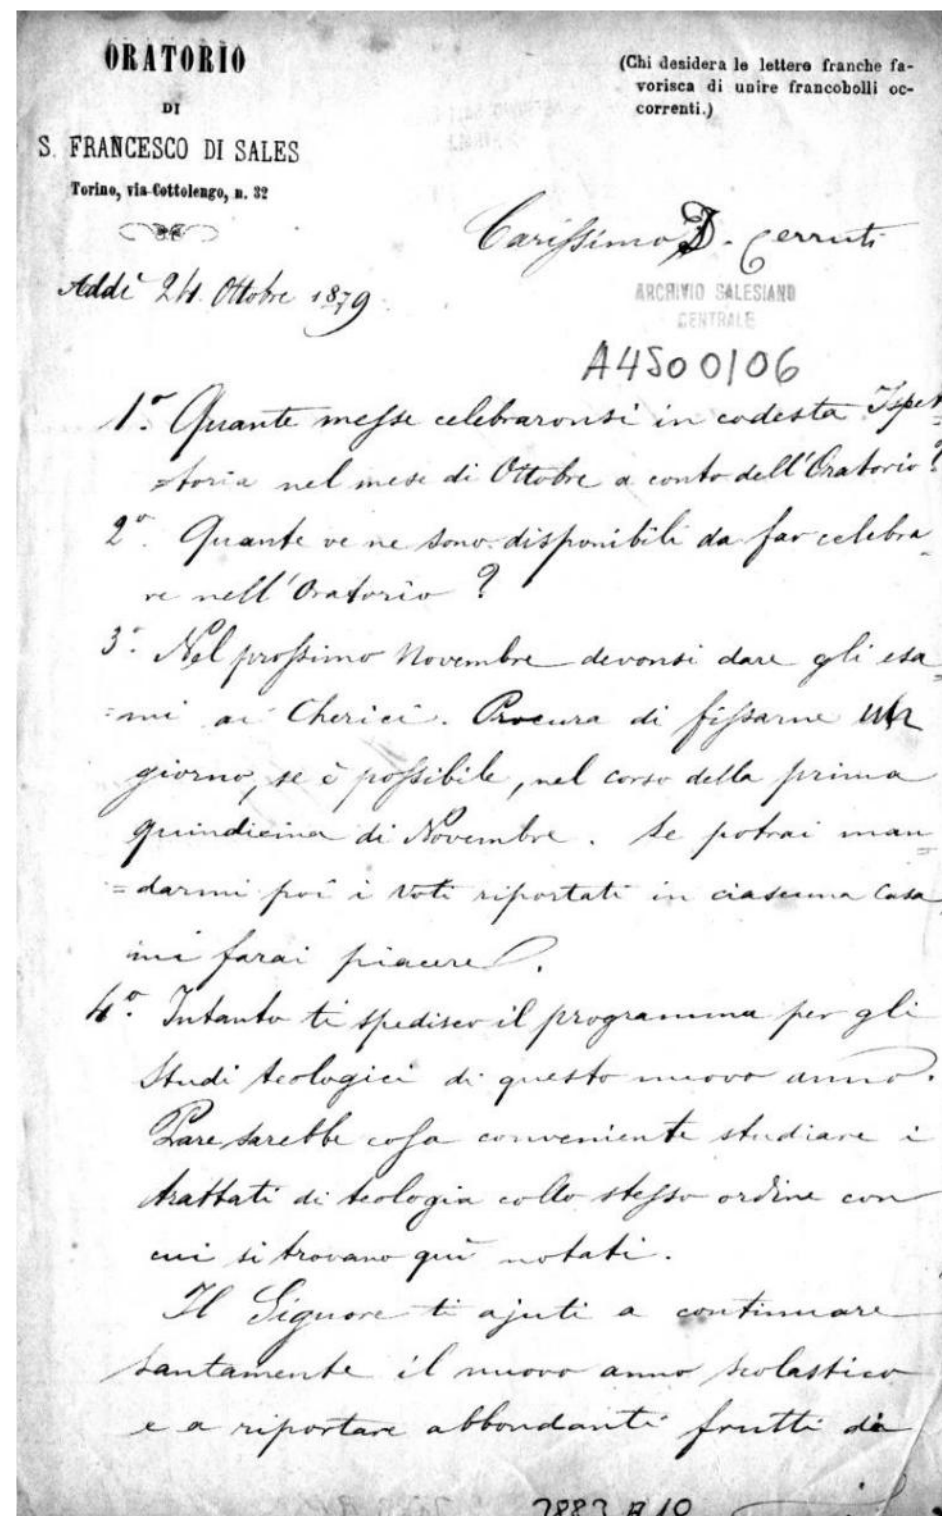 ORATORIO
DI
S. FRANCESCO DI SALES
Torino, via Cottolengo, n. 32
(Chi desidera le lettere franche fa-
vorisca di unire francobolli oc-
correnti.)
Carissimo D. Cerruti
Addì 24 Ottobre 1879
ARCHIVIO SALESIANO
CENTRALE
A4500106
1.° Quante messe celebraronsi in codesta Ispet
=toria nel mese di Ottobre a conto dell'Oratorio?
2°. Quante ve ne sono disponibili da far celebra
re nell'Oratorio?
3°. Nel prossimo Novembre devonsi dare gli esa=
=mi ai Cherici. Procura di fissarne un
giorno, se è possibile, nel corso della prima
quindicina di Novembre. Se potrai man=
=darmi poi i voti riportati in ciascuna Casa
mi farai piacere.
4°. Intanto ti spedisco il programma per gli
Studi teologici di questo nuovo anno.
Pare sarebbe cosa conveniente studiare i
trattati di teologia collo stesso ordine con
cui si trovano quì notati.
Il Signore ti ajuti a continuare
santamente il nuovo anno scolastico
e a riportare abbondanti frutti di
2883 B 10